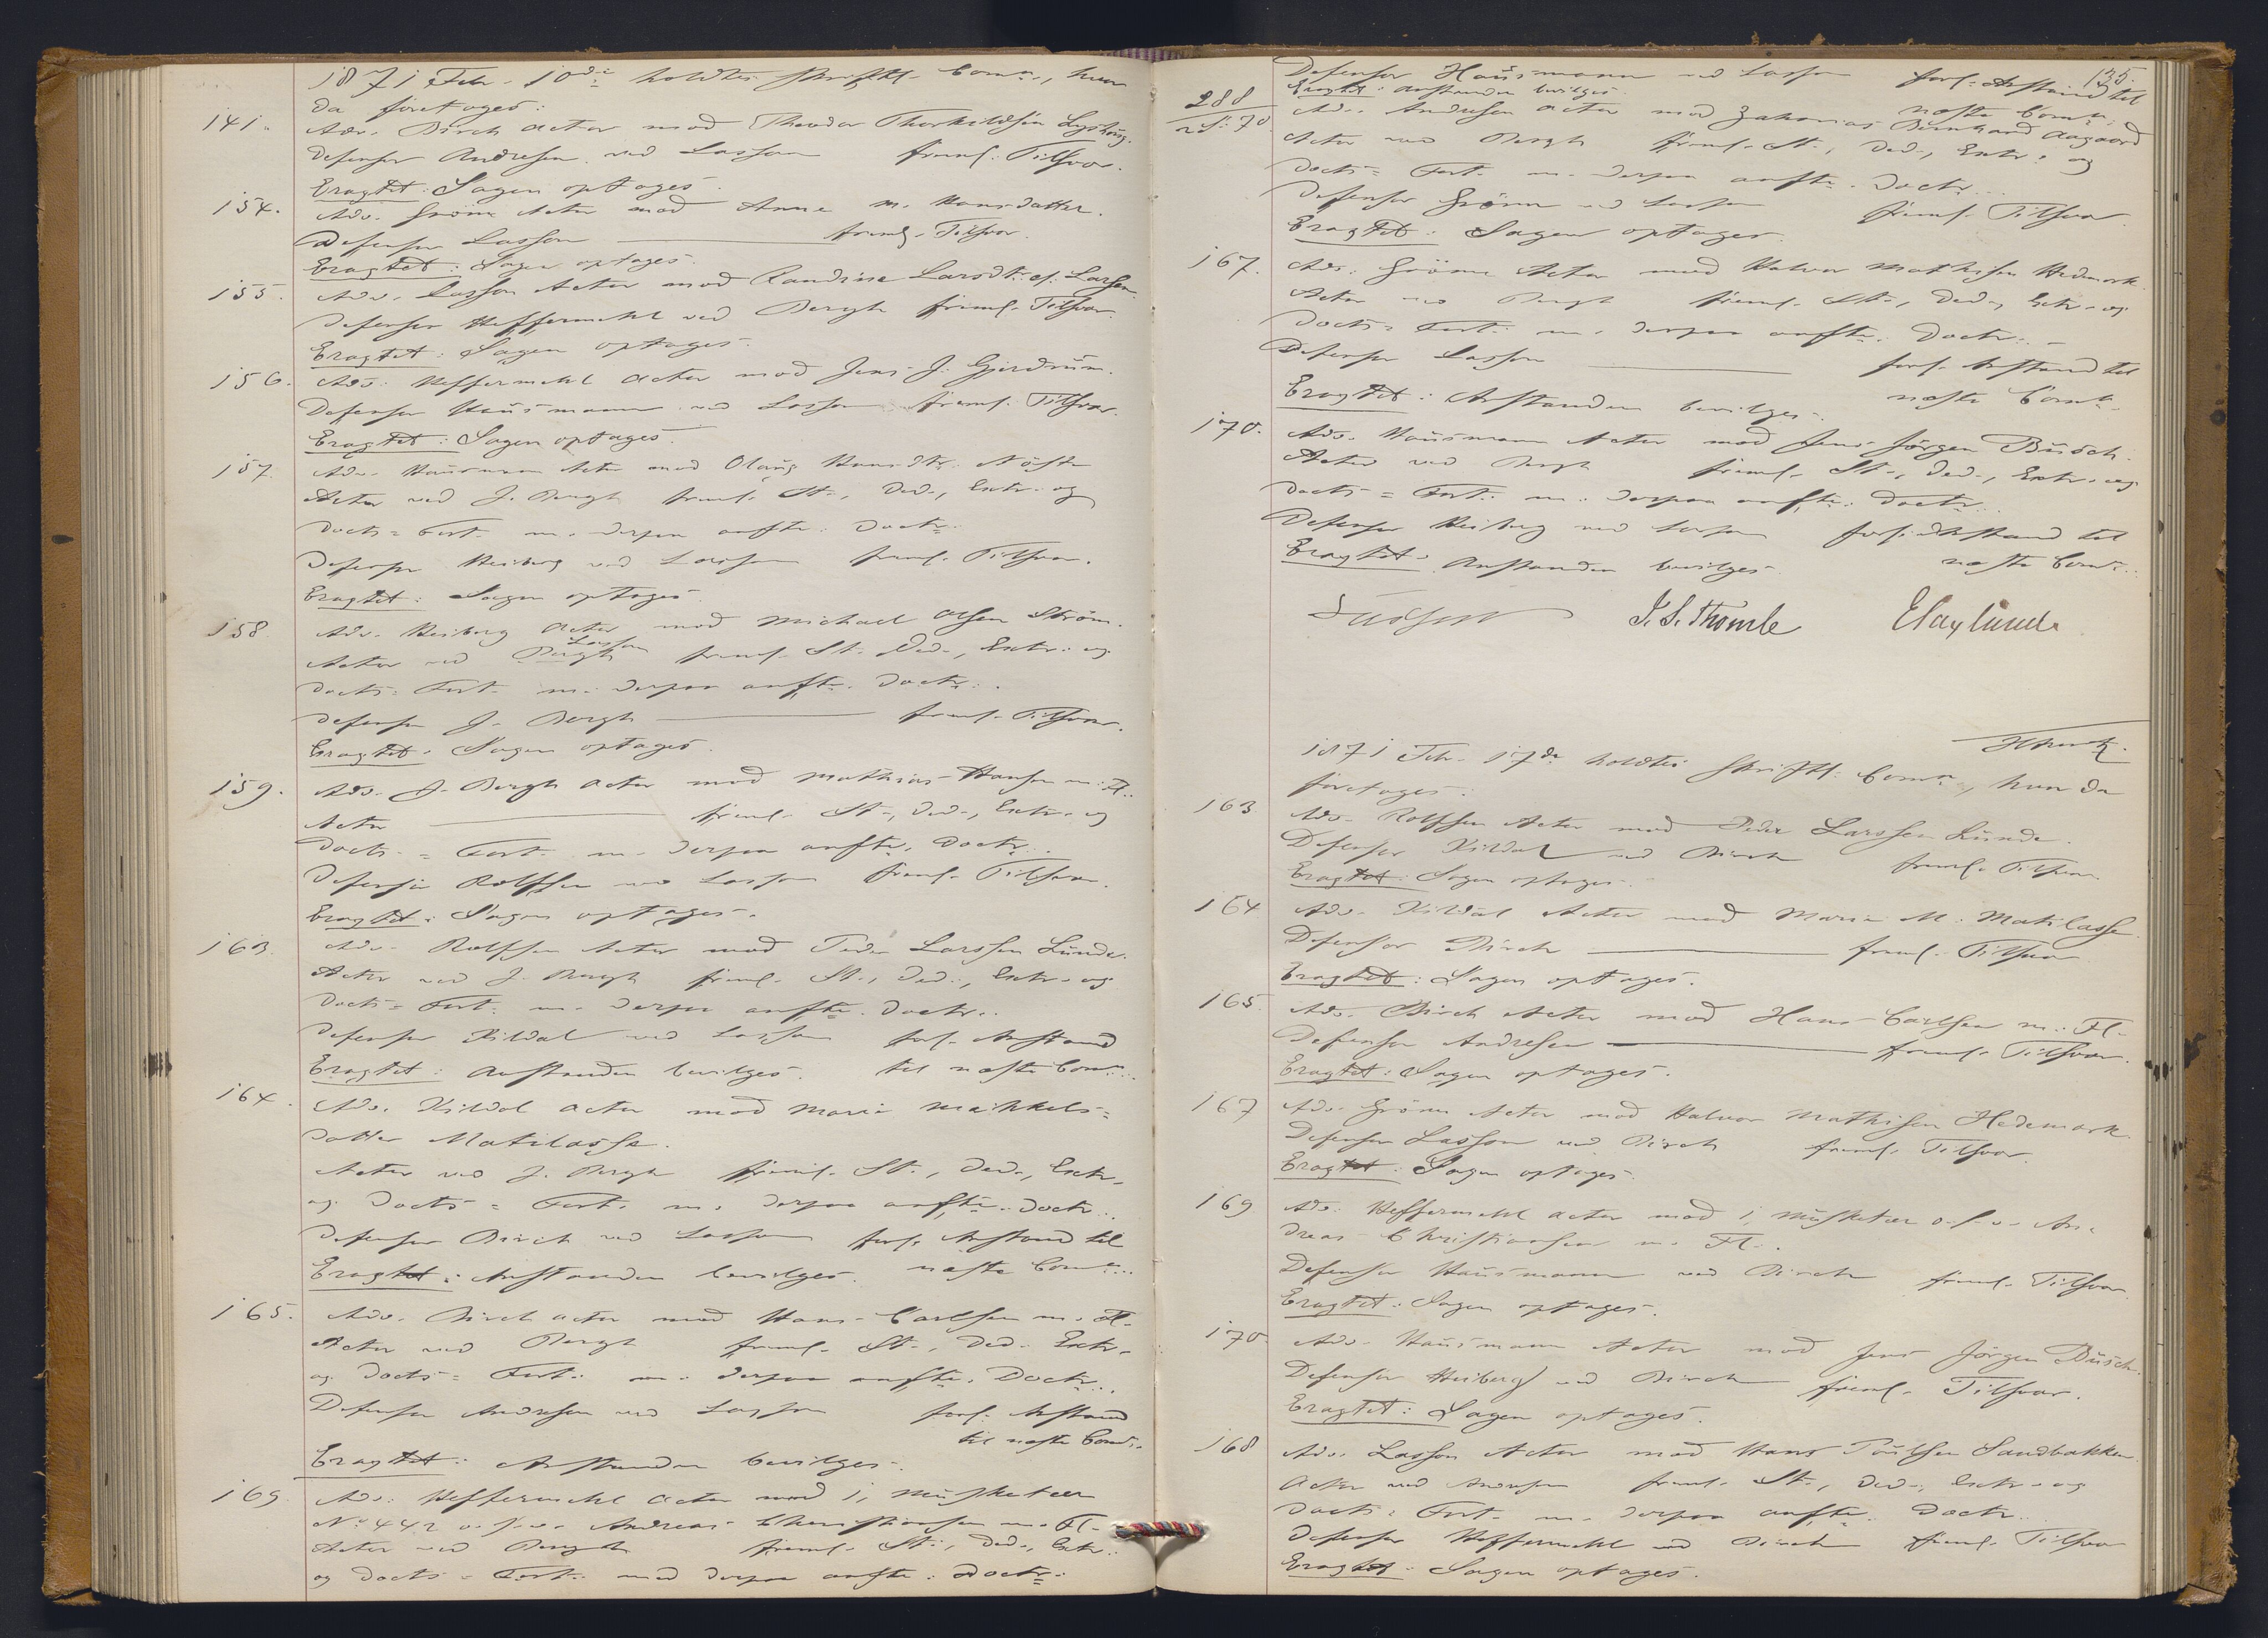 1871 Febr. 10de holdtes skriftl. Comn., hvor
da foretoges:
141. Adv. Birch Actor mod Theodor Thorkildsen
Defensor Andresen ved Lasson freml. Tilsvar.
Eragtet: Sagen optages.
154. Adv. Grönn Actor mod Anne M. Hansdatter.
Defensor Lasson freml. Tilsvar.
Eragtet: Sagen optages.
155. Adv. Lasson Actor mod Randine Larsdtr. ell. Larsen.
Defensor Heffermehl ved Bergh freml. Tilsvar.
Eragtet: Sagen optages.
156. Adv. Heffermehl Actor mod Jens J. Gjerdrum.
Defensor Hausmann ved Lasson freml. Tilsvar.
Eragtet: Sagen optages.
157. Adv. Hausmann Actor mod Olaug Hansdtr.
Actor ved J. Bergh freml. St., Ded., Extr. og
Docts = Fort. m. derpaa anfte. Doctr.
Defensor Heiberg ved Lasson freml. Tilsvar.
Eragtet: Sagen optages.
158. Adv. Heiberg Actor mod Michael Olsen Ström.
Actor ved Lasson freml. St., Ded., Extr. og
Docts = Fort. m. derpaa anfte. Doctr.
Defensor J. Bergh freml. Tilsvar.
Eragtet: Sagen optages.
159. Adv. J. Bergh Actor mod Mathias Hansen m. Fl.
Actor freml. St., Ded., Extr. og
Docts = Fort. m. derpaa anfte. Doctr.
Defensor Rolfsen ved Lasson freml. Tilsvar.
Eragtet: Sagen optages.
163. Adv. Rolfsen Actor mod Peder Larssen Lunde.
Actor ved J. Bergh freml. St., Ded., Extr. og
Docts = Fort. m. derpaa anfte. Doctr.
Defensor Kildal ved Lasson forl. Anstand
Eragtet: Anstanden bevilges. til næste Comn.
164. Adv. Kildal Actor mod Maria Maikkels=
datter Matilasse.
Actor ved J. Bergh freml. St., Ded., Extr.
og Docts = Fort. m. derpaa anfte. Doctr.
Defensor Birch ved Lasson forl. Anstand til
Eragtet: Anstanden bevilges. næste Comn.
165. Adv. Birch Actor mod Hans Carlsen m. Fl.
Actor ved Bergh freml. St., Ded. Extr.
og Docts = Fort. m. derpaa anfte. Doctr.
Defensor Andresen ved Lasson forl. Anstand
til næste Comn.
Eragtet: Anstanden bevilges.
169. Adv. Heffermehl Actor mod 1, Musketeer
No 442 o.s.v. Andreas Christiansen m. Fl.
Actor ved Bergh freml. St., Ded., Extr.
og Docts = Fort. med derpaa anfte. Doctr.
135.
Defensor Hausmann ved Lasson forl. Anstand til
Eragtet: Anstanden bevilges. næste Comn.
288 Adv. Andresen Actor mod Zakarias Bernhard Aagaard
Actor ved Bergh freml. St., Ded., Extr. og
Docts = Fort. m. derpaa anfte. Doctr.
Defensor Grönn ved Lasson freml. Tilsvar
Eragtet: Sagen optages.
167. Adv. Grönn Actor mod Halvor Mathisen Hedmark.
Actor ved Bergh freml. St., Ded., Extr. og
Docts = Fort. m. derpaa anfte. Doctr.
Defensor Lasson forl. Anstand til
Eragtet: Anstanden bevilges. næste Comn.
170. Adv. Hausmann Actor mod Jens Jörgen Busch.
Actor ved Bergh freml. St., Ded., Extr. og
Docts = Fort. m. derpaa anfte. Doctr.
Defensor Heiberg ved Lasson forl. Anstand til
Eragtet: Anstanden bevilges. næste Comn.
Lasson J. S. Thomle
1871 Febr. 17de holdtes skriftl. Comn., hvor da
foretoges:
163 Adv. Rolfsen Actor mod Peder Larssen Lunde.
Defensor Kildal ved Birch freml. Tilsvar.
Eragtet: Sagen optages.
164 Adv. Kildal Actor mod Maria M. Matilasse.
Defensor Birch freml. Tilsvar
Eragtet: Sagen optages.
165 Adv. Birch Actor mod Hans Carlsen m. Fl.
Defensor Andresen freml. Tilsvar.
Eragtet: Sagen optages.
167 Adv. Grönn Actor mod Halvor Mathisen Hedemark.
Defensor Lasson ved Birch freml. Tilsvar.
Eragtet: Sagen optages.
169 Adv. Heffermehl Actor mod 1, Musketeer o.s.v. An=
dreas Christiansen m. Fl.
Defensor Hausmann ved Birch freml. Tilsvar
Eragtet: Sagen optages.
170. Adv. Hausmann Actor mod Jens Jörgen Busch.
Defensor Heiberg ved Birch freml. Tilsvar.
Eragtet: Sagen optages.
168 Adv. Lasson Actor mod Hans Paulsen Sandbakken
Actor ved Andresen freml. St., Ded., Extr. og
Docts = Fort. m. derpaa anfte. Doctr.
Defensor Heffermehl ved Birch freml. Tilsvar
Eragtet: Sagen optages.